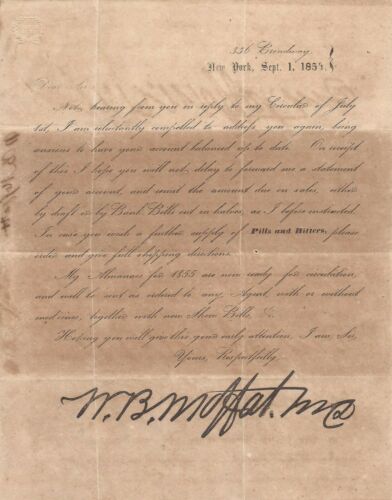 335 Broadway,
New York, Sept. 1, 1854.
Dear Sir
Not hearing from you in reply to my Circular of July
1st, I am reluctantly compelled to address you again, being
anxious to have your account balanced up to date. On receipt
of this I hope you will not delay to forward me a statement
of your account, and remit the amount due on sales, either
by draft or by Bank Bills cut in halves, as I before instructed.
In case you wish a further supply of Pills and Bitters, please
order and give full shipping directions.
My Almanacs for 1855 are now ready for circulation,
and will be sent as ordered to any Agent, with or without
medicines, together with new Show Bills, &c.
Hoping you will give this your early attention, I am, Sir,
Yours, Respectfully,
W. B. Moffat. MD